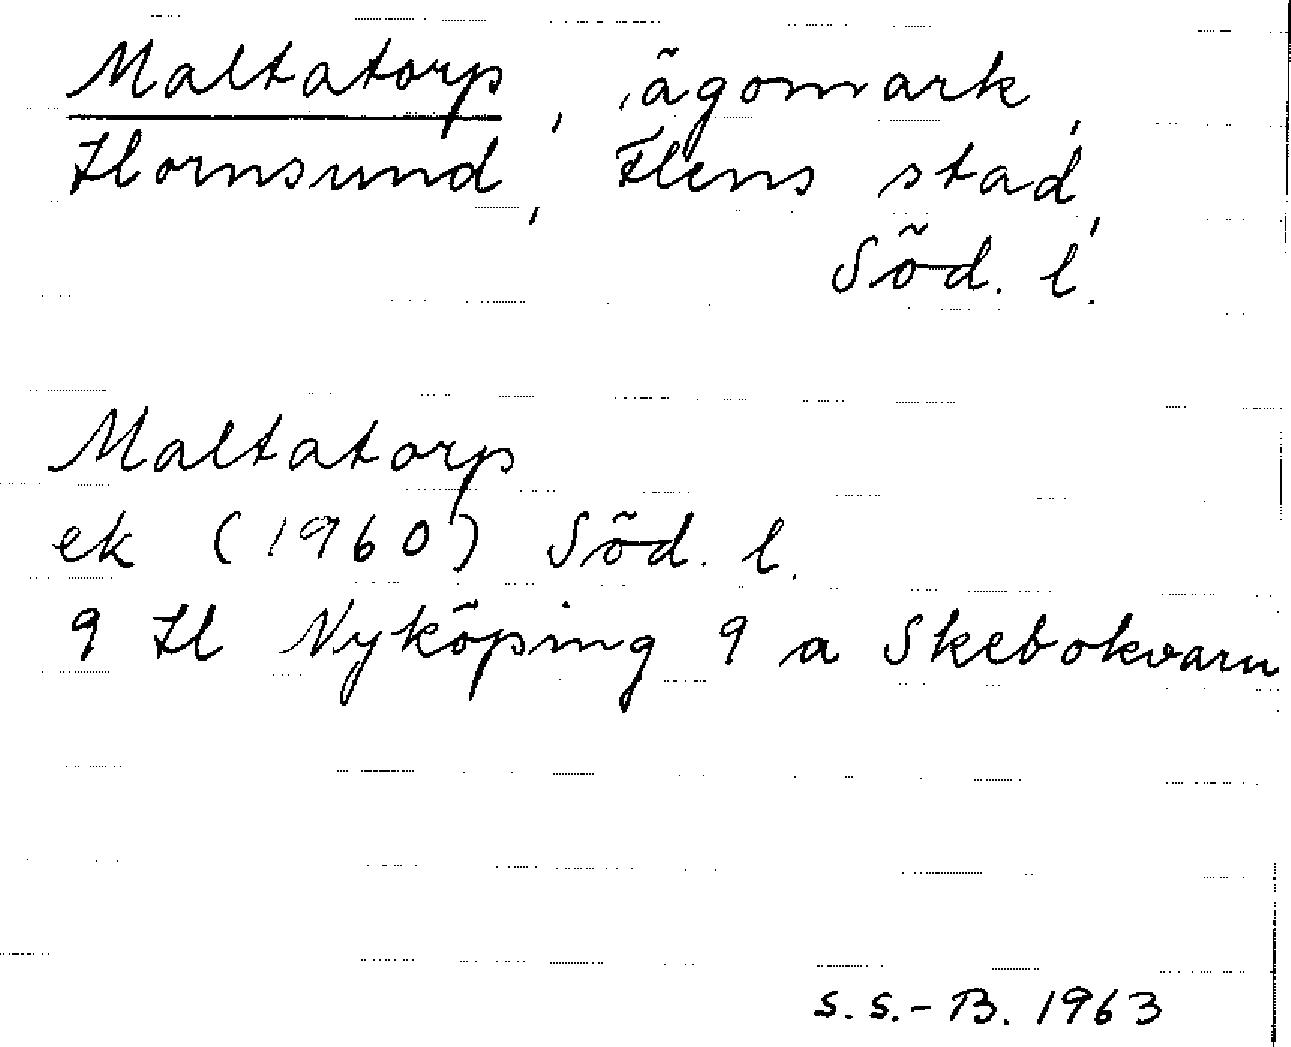 Maltatorp, ägomark,
Hornsund, Flens stad,
Söd. l.
Maltatorp
ek (1960) Söd. l.
9 H Nyköping 9 a Skebokvarn
S.S.-B. 1963